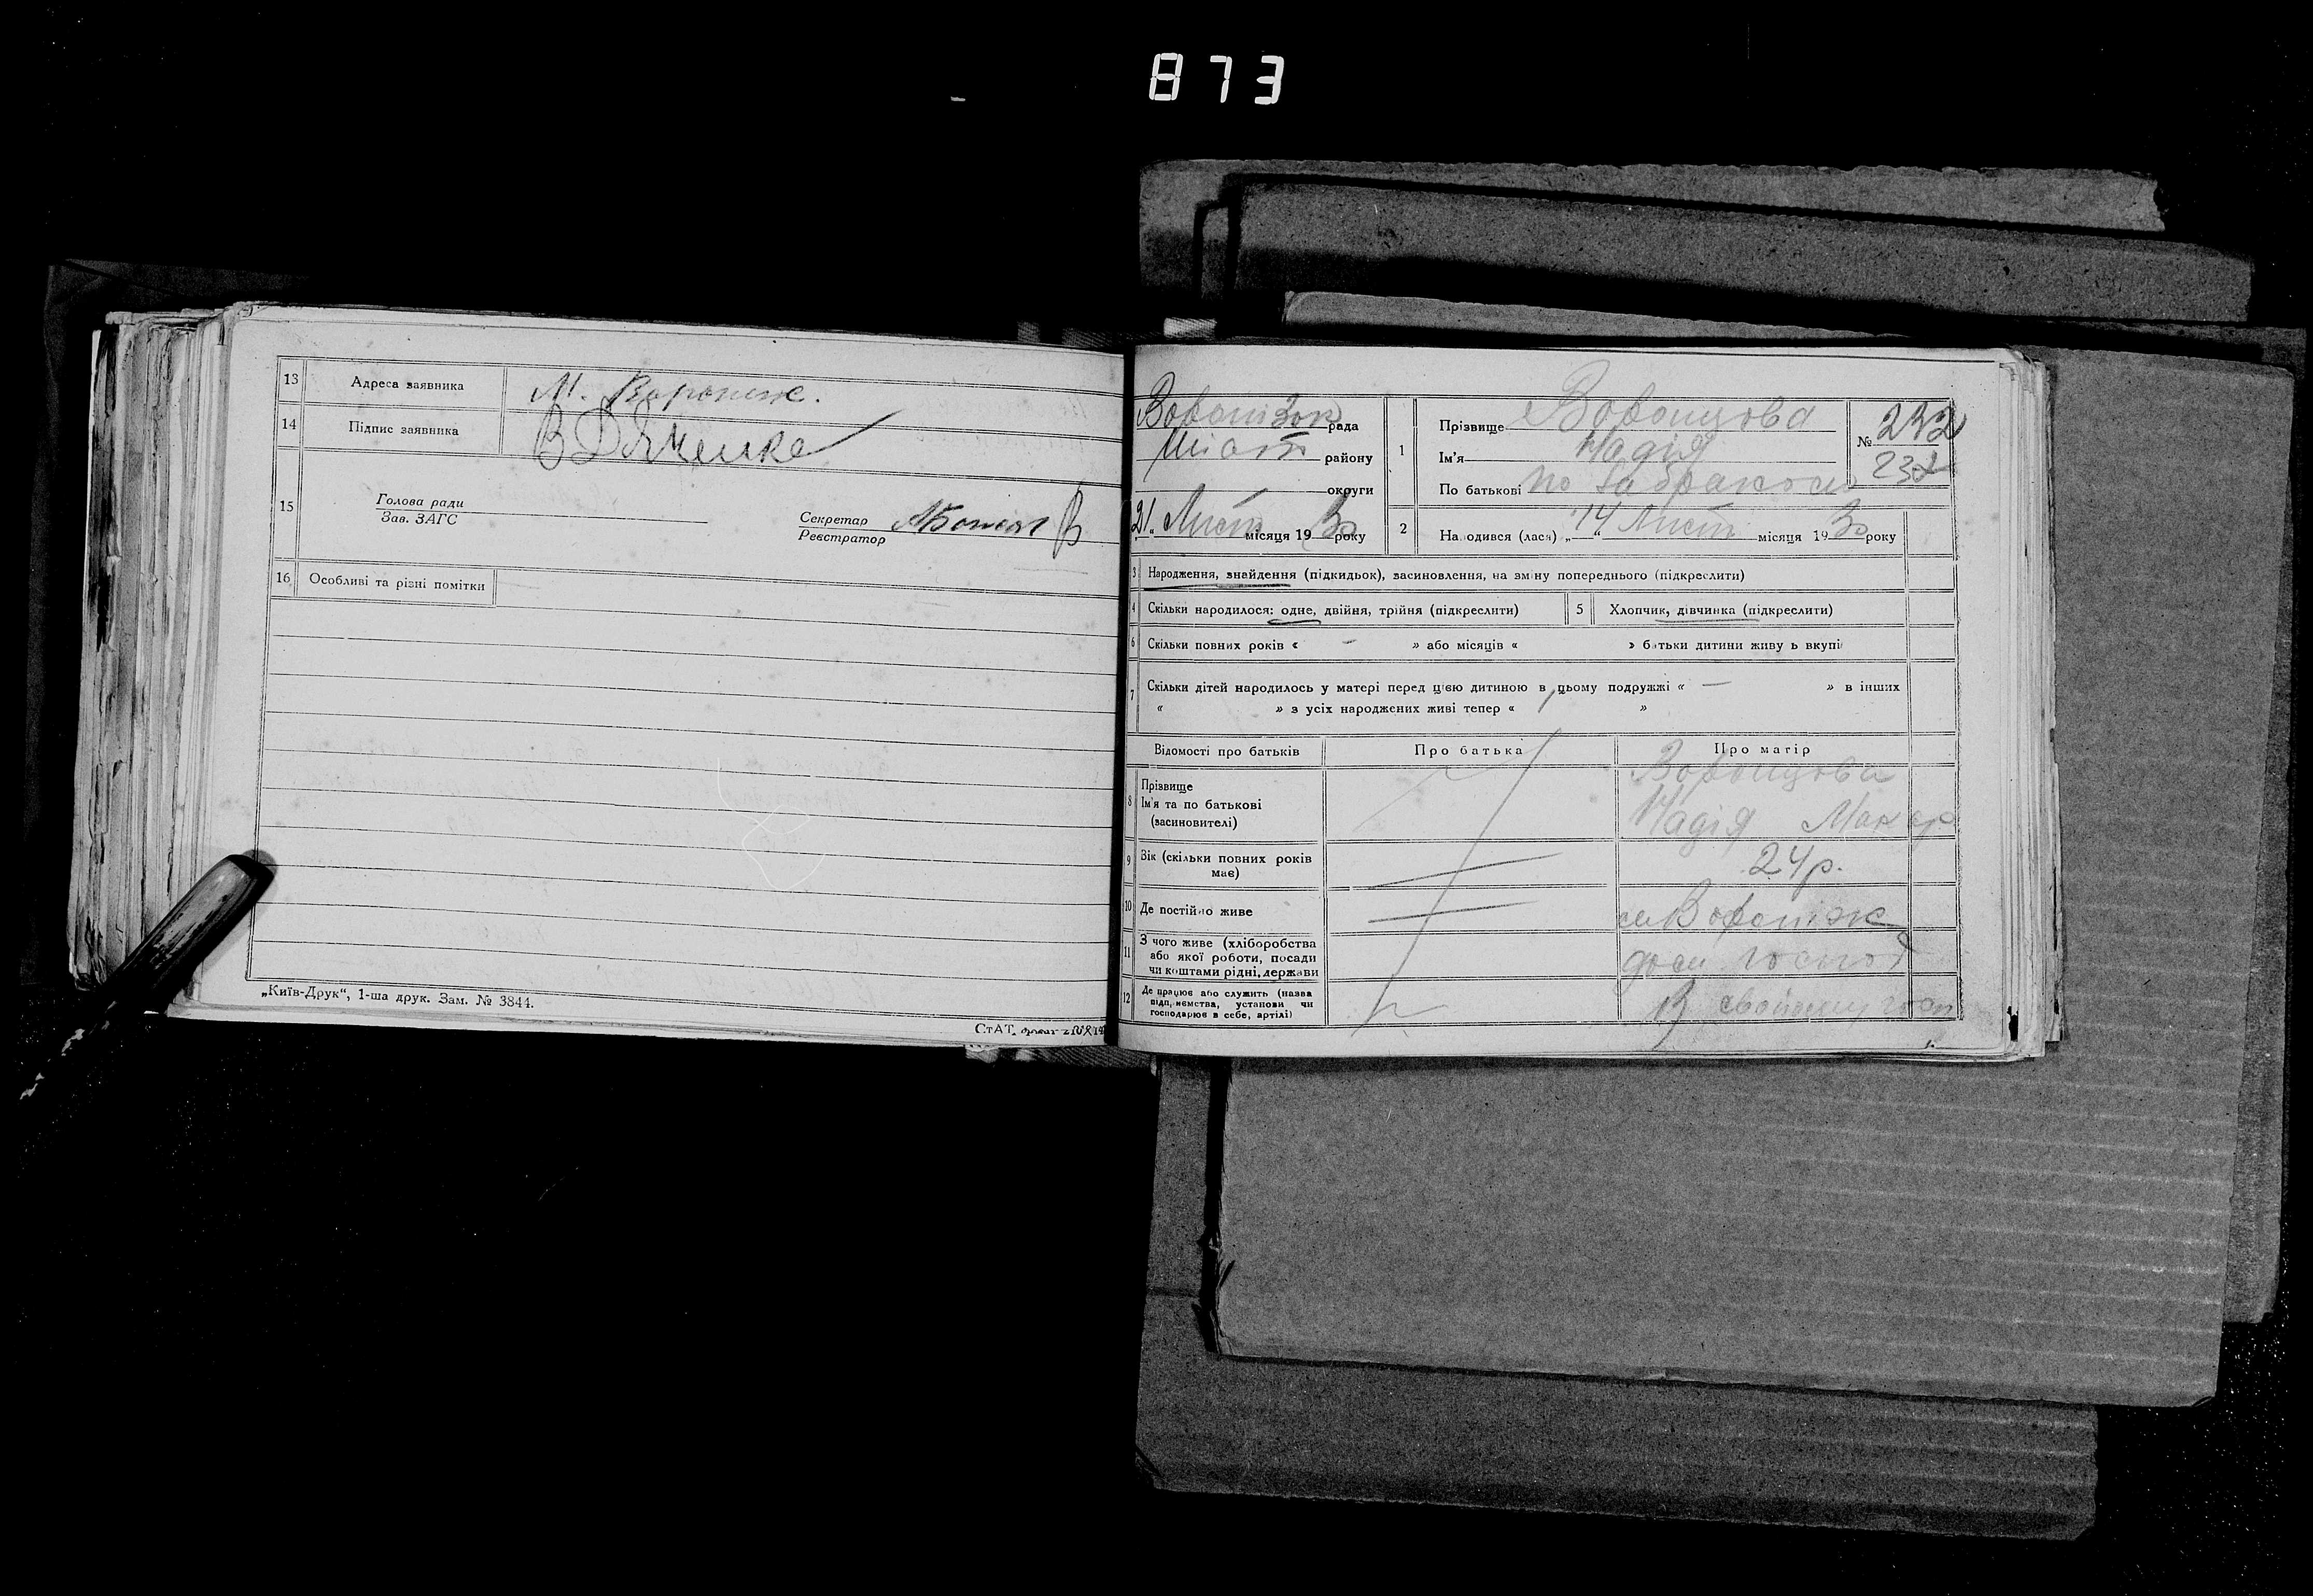 873
13 Адреса заявника М. Воронеж.
14 Підпис заявника В Дяченко
15 Голова ради
Зав. ЗАГС
Секретар
Реєстратор
16 Особливі та різні помітки
„Київ-Друк“, 1-ша друк. Зам. № 3844.
СтАТ.
рада
району
округи
21 „ Лист місяця 19 30 року
1 Прізвище Воронцова
Ім'я Надія
По батькові
№ 232
232
2 Народився (лася) „ 14 “ Лист місяця 19 30 року
3 Народження, знайдення (підкидьок), засиновлення, на зміну попереднього (підкреслити)
4 Скільки народилося: одне, двійня, трійня (підкреслити)
5 Хлопчик, дівчинка (підкреслити)
6 Скільки повних років « — » або місяців « » батьки дитини живуть вкупі
7 Скільки дітей народилось у матері перед цією дитиною в цьому подружжі « — » в інших
« » з усіх народжених живі тепер « »
Відомості про батьків Про батька Про матір
8 Прізвище Воронцова
Ім'я та по батькові Надія Макар
(засновителі)
9 Вік (скільки повних років має) 24 р.
10 Де постійно живе Вороніж
11 З чого живе (хліборобства
або якої роботи, посади
чи коштами рідні, держави
дом господ
12 Де працює або служить (назва
підприємства, установи чи
господарює в себе, артілі)
В свойому госп